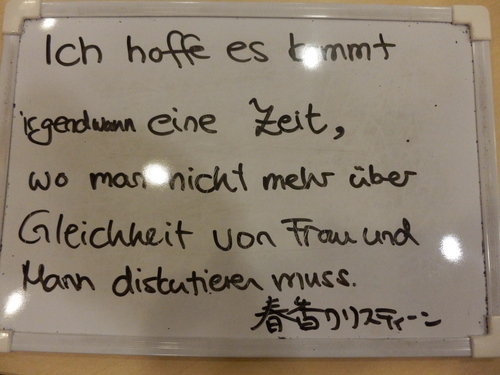 Ich hoffe es kommt
irgendwann eine Zeit,
wo man nicht mehr über
Gleichheit von Frau und
Mann diskutieren muss.
春香クリスティーン